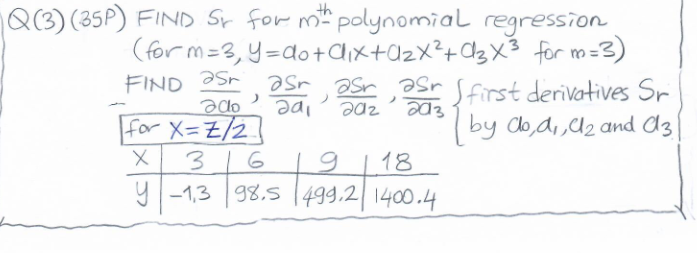 Q(3)(35P) FIND Sr for mth polynomial regression
(for m=3, y=a0+a1x+a2x²+a3x³ for m=3)
FIND ∂Sr/∂a0, ∂Sr/∂a1, ∂Sr/∂a2, ∂Sr/∂a3 {first derivatives Sr
by a0,a1,a2 and a3
for x=Z/2
X 3 6 9 18
y -1,3 98.5 499.2 1400.4